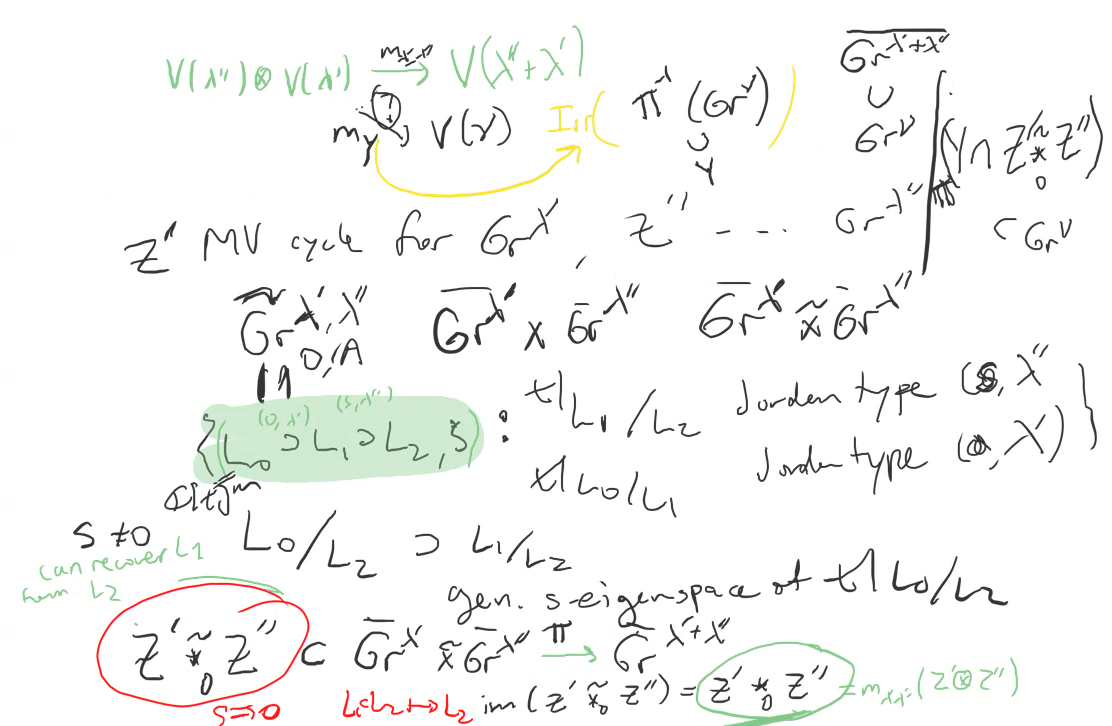 V(λ'') ⊗ V(λ') → V(λ''+λ')
m_γ V(ν) Irr( π⁻¹ (Gr^ν) )
∪
Y
Gr^λ'+λ''
∪
Gr^ν
π
(Y ∩ Z' *̃₀ Z'')
⊂ Gr^ν
Z' MV cycle for Gr^λ' Z'' - - .... Gr^λ''
Gr^λ',λ''_0,A Gr^λ' × Gr^λ'' Gr^λ' ×̃ Gr^λ''
{(L₀ ⊃ L₁ ⊃ L₂, s) : t|L₁/L₂ Jorden type (s, λ'')
(0, λ') (s, λ'')
t|L₀/L₁ Jorden type (0, λ') }
C[t]^m
s ≠ 0 L₀/L₂ ⊃ L₁/L₂
can recover L1
from L2
gen. s-eigenspace of t|L₀/L₂
Z' *̃₀ Z'' ⊂ Gr^λ' ×̃ Gr^λ'' π → Gr^λ'+λ''
s→0 L₁⊃L₂ ↦ L₂ im (Z' *̃₀ Z'') = Z' *₀ Z'' = m_λ',λ'' (Z' ⊗ Z'')